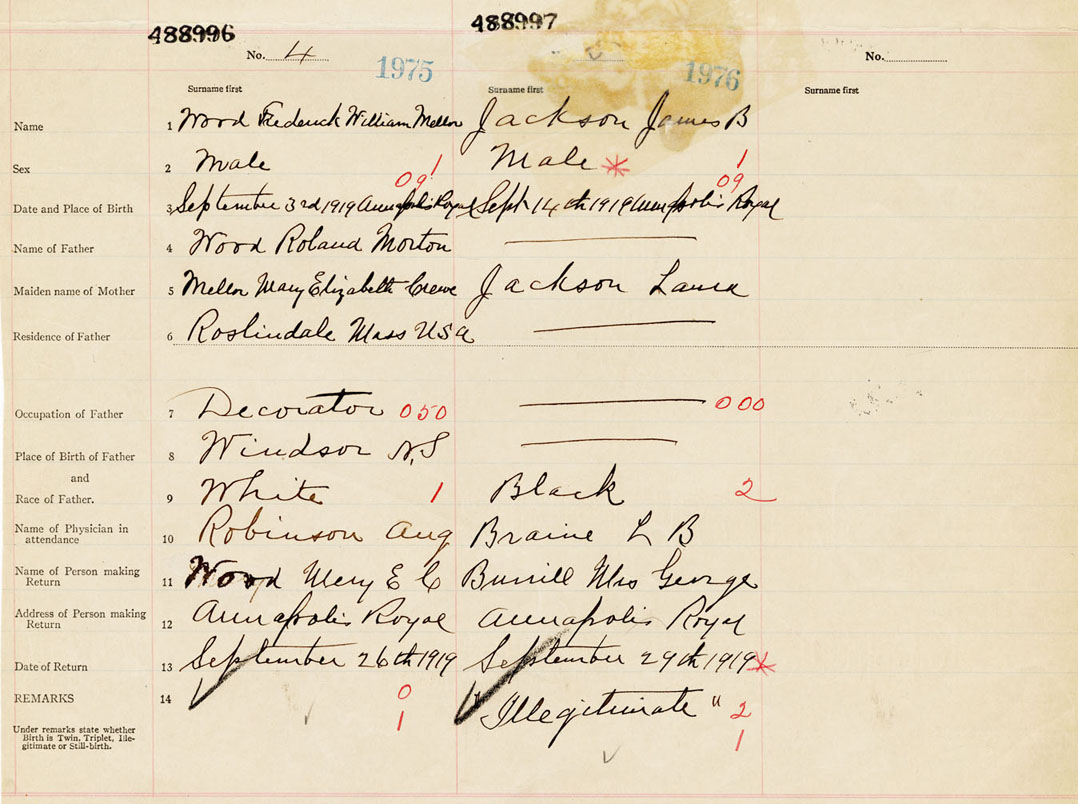 488996 488997
No. 4 1975 1976 No.
Surname first Surname first Surname first
Name 1 Wood Frederick William Mellor Jackson James B
Sex 2 Male 1 Male * 1
09 09
Date and Place of Birth 3 September 3rd 1919 Annapolis Royal Sept 14th 1919 Annapolis Royal
Name of Father 4 Wood Roland Morton
Maiden name of Mother 5 Mellor Mary Elizabeth Crewe Jackson Laura
Residence of Father 6 Roslindale Mass USA
Occupation of Father 7 Decorator 050 000
Place of Birth of Father 8 Windsor N.S
and
Race of Father. 9 White 1 Black 2
Name of Physician in
attendance 10 Robinson Aug Braine L B
Name of Person making
Return 11 Wood Mery E C Burrill Mrs George
Address of Person making
Return 12 Annapolis Royal Annapolis Royal
Date of Return 13 September 26th 1919 September 29th 1919 *
REMARKS 14 0 "Illegitimate" 2
1 1
Under remarks state whether
Birth is Twin, Triplet, Ille-
gitimate or Still-birth.